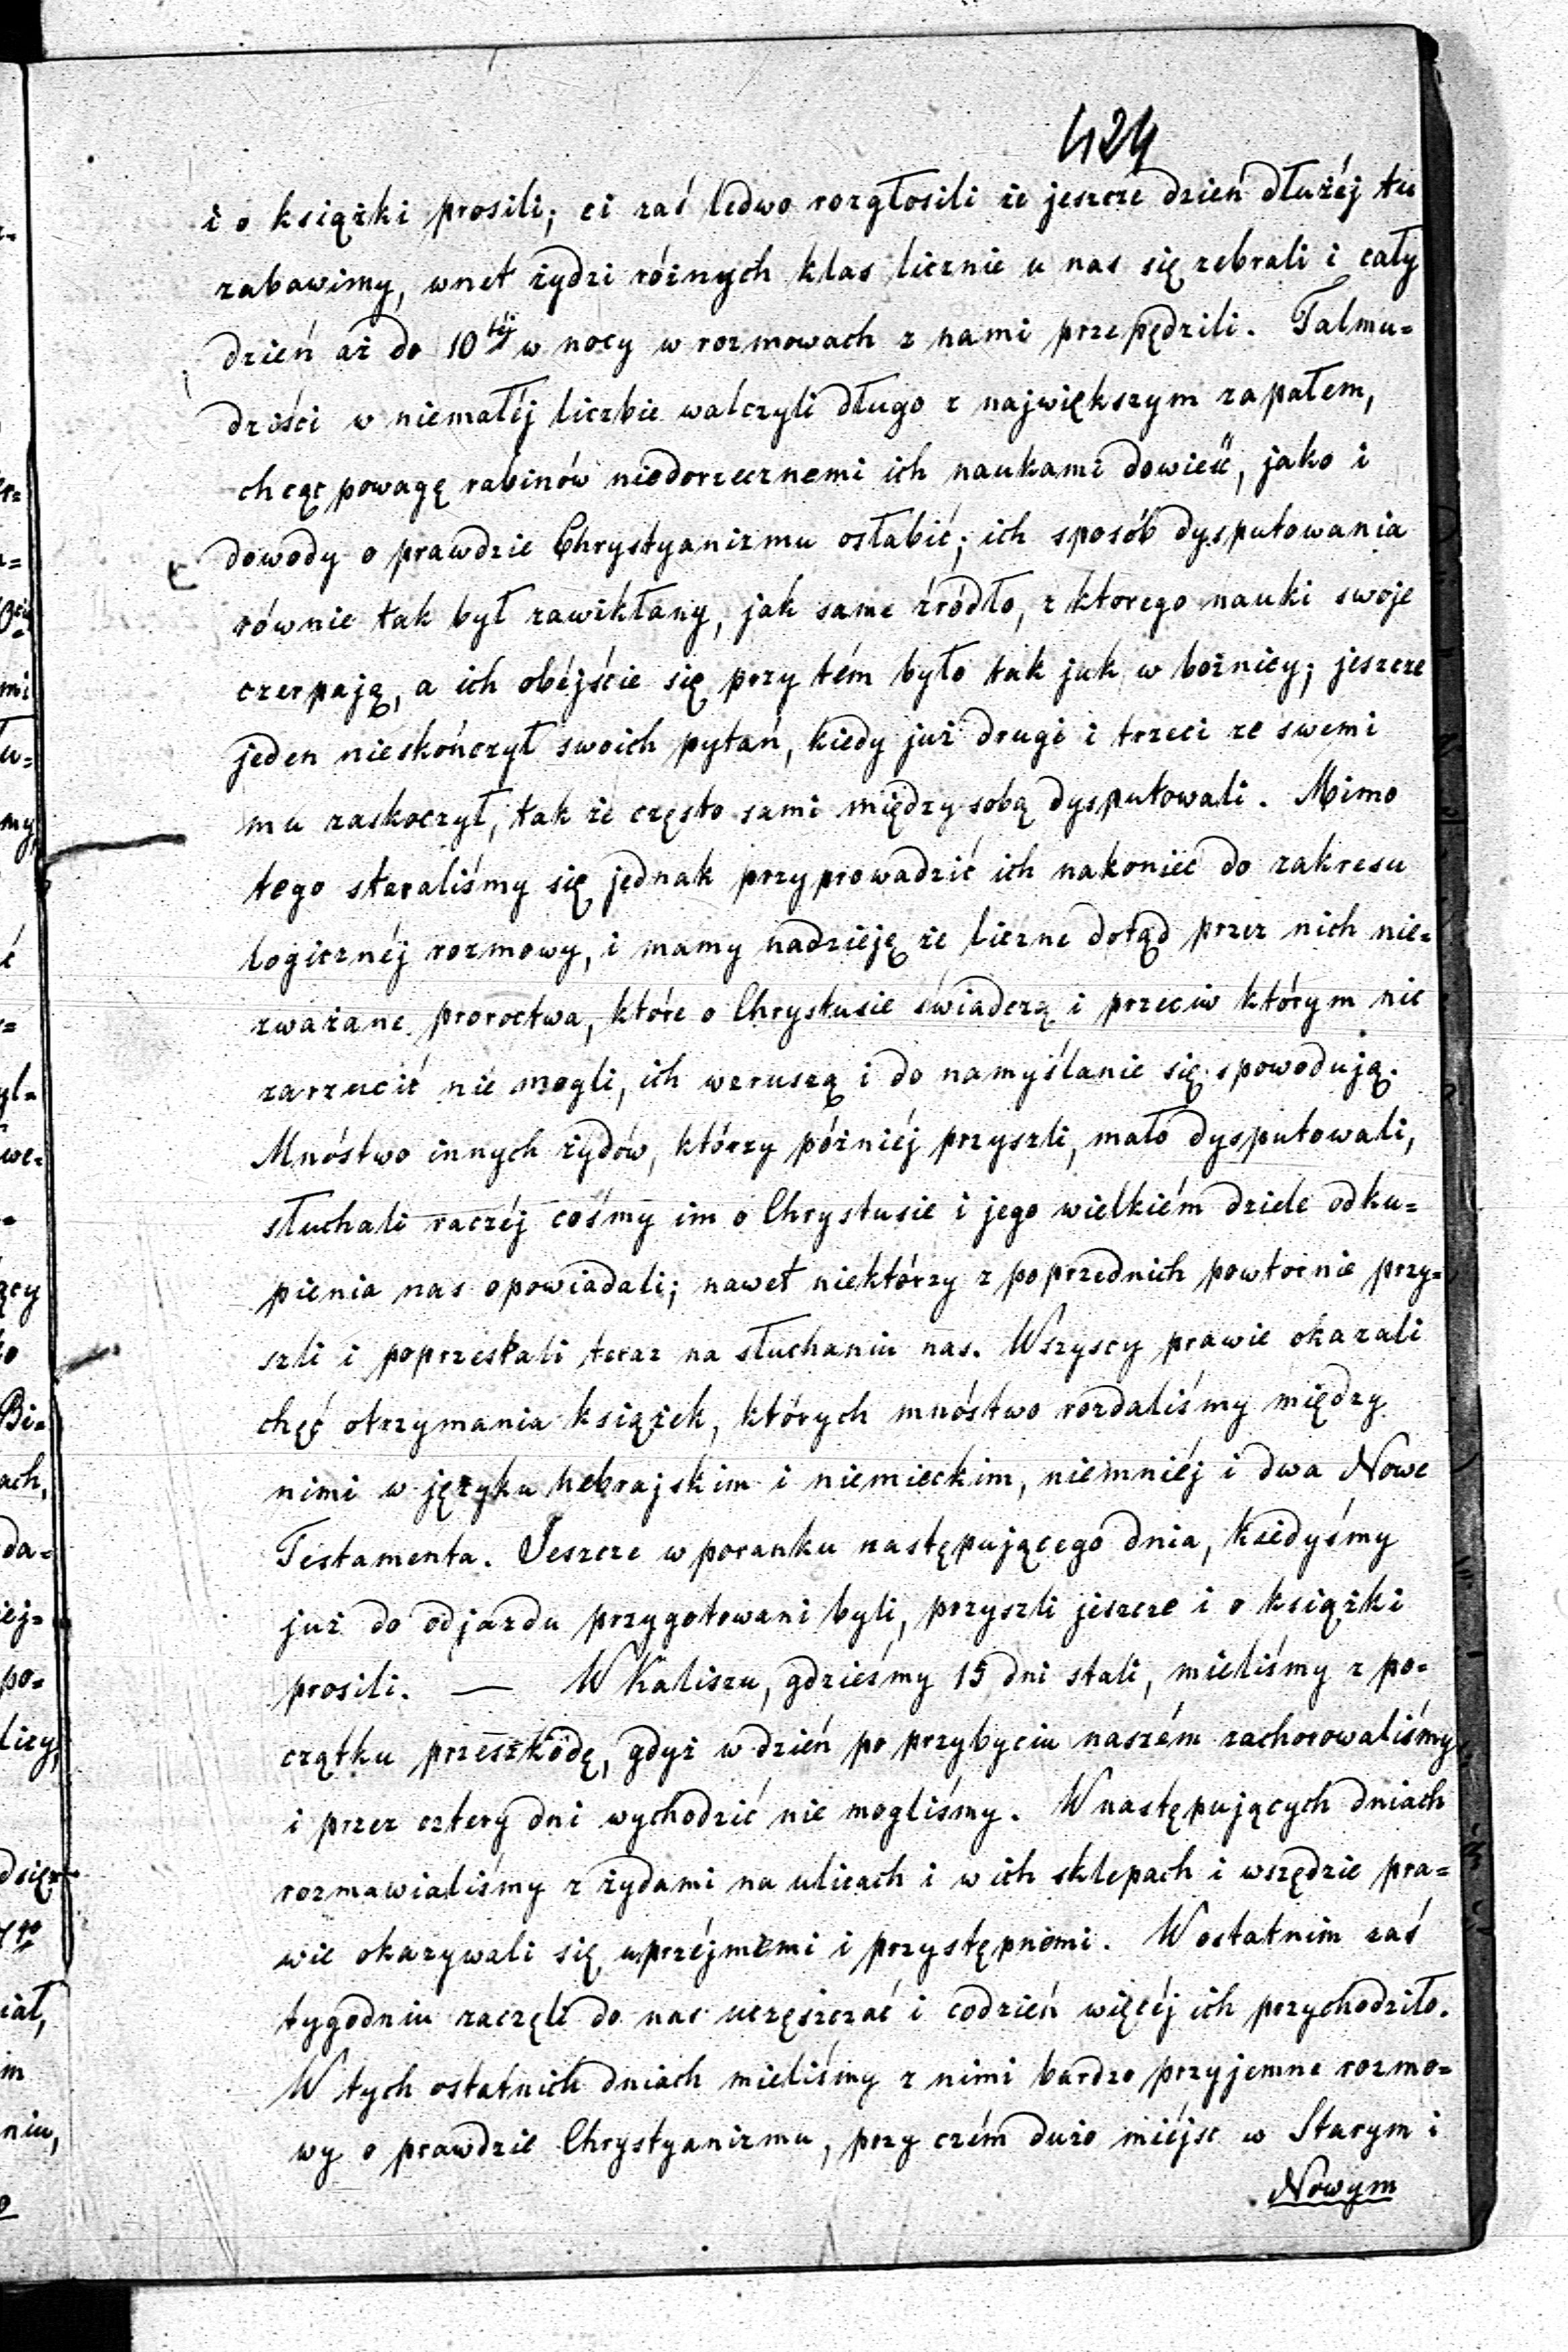 424
i o książki prosili; ci zaś ledwo rozgłosili że jeszcze dzień dłużéj tu
zabawimy, wnet żydzi różnych klas licznie u nas się zebrali i cały
dzień aż do 10téj w nocy w rozmowach z nami przepędzili. Talmu=
dziści w niemałéj liczbie walczyli długo z największym zapałem,
chcąc powagę rabinów niedorzecznemi ich naukami dowieść, jako i
dowody o prawdzie Chrystyanizmu osłabić; ich sposób dysputowania
równie tak był zawikłany, jak same źródło, z ktorego nauki swoje
czerpają, a ich obéjście się przy tém było tak jak w bożnicy; jeszcze
jeden nieskończył swoich pytań, kiedy już drugi i trzeci ze swemi
mu zaskoczył, tak że często sami między sobą dysputowali. Mimo
tego staraliśmy się jednak przyprowadzić ich nakoniec do zakresu
logicznéj rozmowy, i mamy nadzieję że liczne dotąd przez nich nie=
zważane proroctwa, które o Chrystusie świadczą i przeciw którym nic
zarzucić nie mogli, ich wzruszą i do namyślanie się spowodują.
Mnóstwo innych żydów, którzy późniéj przyszli, mało dysputowali,
słuchali raczéj cośmy im o Chrystusie i jego wielkiém dziele odku=
pienia nas opowiadali; nawet niektórzy z poprzednich powtornie przy=
szli i poprzestali teraz na słuchaniu nas. Wszyscy prawie okazali
chęć otrzymania książek, których mnóstwo rozdaliśmy między
nimi w języku hebrajskim i niemieckim, niemniéj i dwa Nowe
Testamenta. Jeszcze w poranku następującego dnia, kiedyśmy
już do odjazdu przygotowani byli, przyszli jeszcze i o książki
prosili. — W Kaliszu, gdzieśmy 15 dni stali, mieliśmy z po=
czątku przeszkodę, gdyż w dzień po przybyciu naszém zachorowaliśmy
i przez cztery dni wychodzić nie mogliśmy. W następujących dniach
rozmawialiśmy z żydami na ulicach i w ich sklepach i wszędzie pra=
wie okazywali się uprzéjmemi i przystępnemi. W ostatnim zaś
tygodniu zaczęli do nas uczęszczać i codzień więcéj ich przychodziło.
W tych ostatnich dniach mieliśmy z nimi bardzo przyjemne rozmo=
wy o prawdzie Chrystyanizmu, przy czém dużo miéjsc w Starym i
Nowym